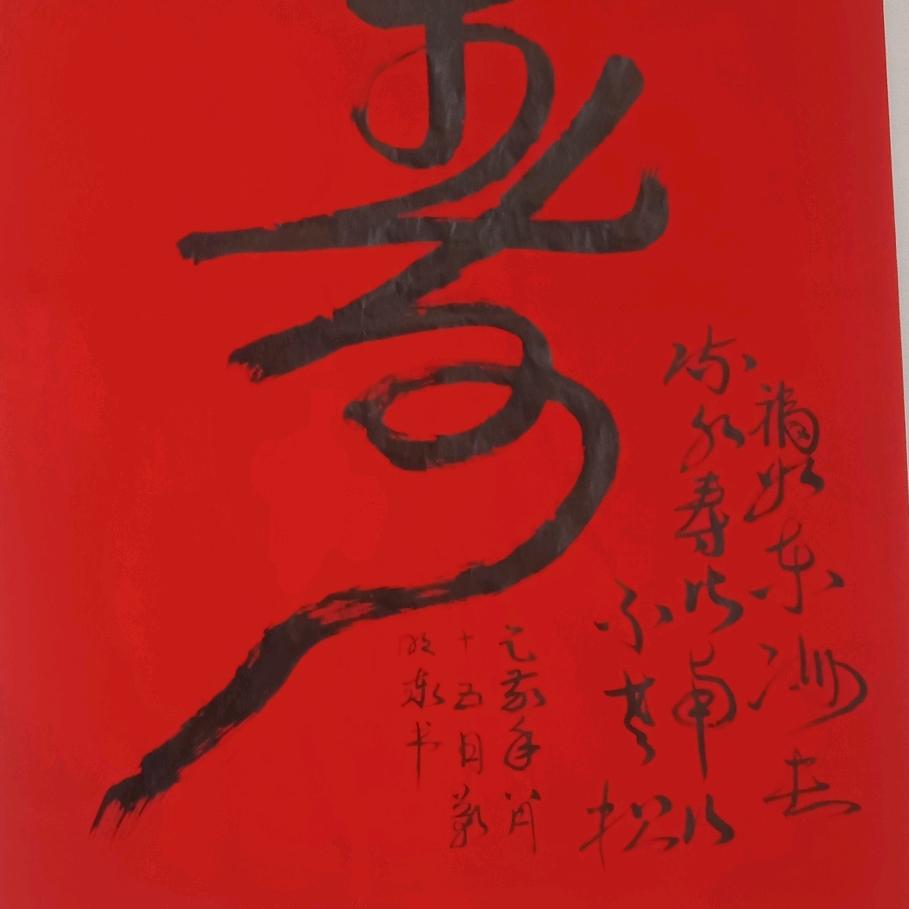 寿
福如东海长
流水寿比南山
不老松
己亥年八月
十五日靳
东书